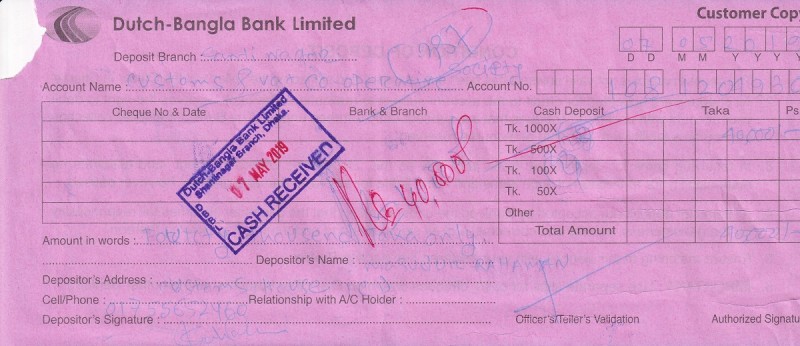 Dutch-Bangla Bank Limited
Customer Copy
Deposit Branch :
07 05 2019
D D M M Y Y Y Y
Account Name : Customs & Vat Co-operative Society
Account No.
Cheque No & Date Bank & Branch Cash Deposit Taka Ps
Tk. 1000X 40,000/-
Tk. 500X
Tk. 100X
Tk. 50X
Other
Total Amount 40000/-
Dutch-Bangla Bank Limited
Branch, Dhaka.
07 MAY 2019
DBBL
CASH RECEIVED
40,000/
Amount in words : Forty thousend taka only.
Depositor's Name : RAHAMAN
Depositor's Address :
Cell/Phone : Relationship with A/C Holder :
Depositor's Signature :
Officer's/Teller's Validation
Authorized Signatu